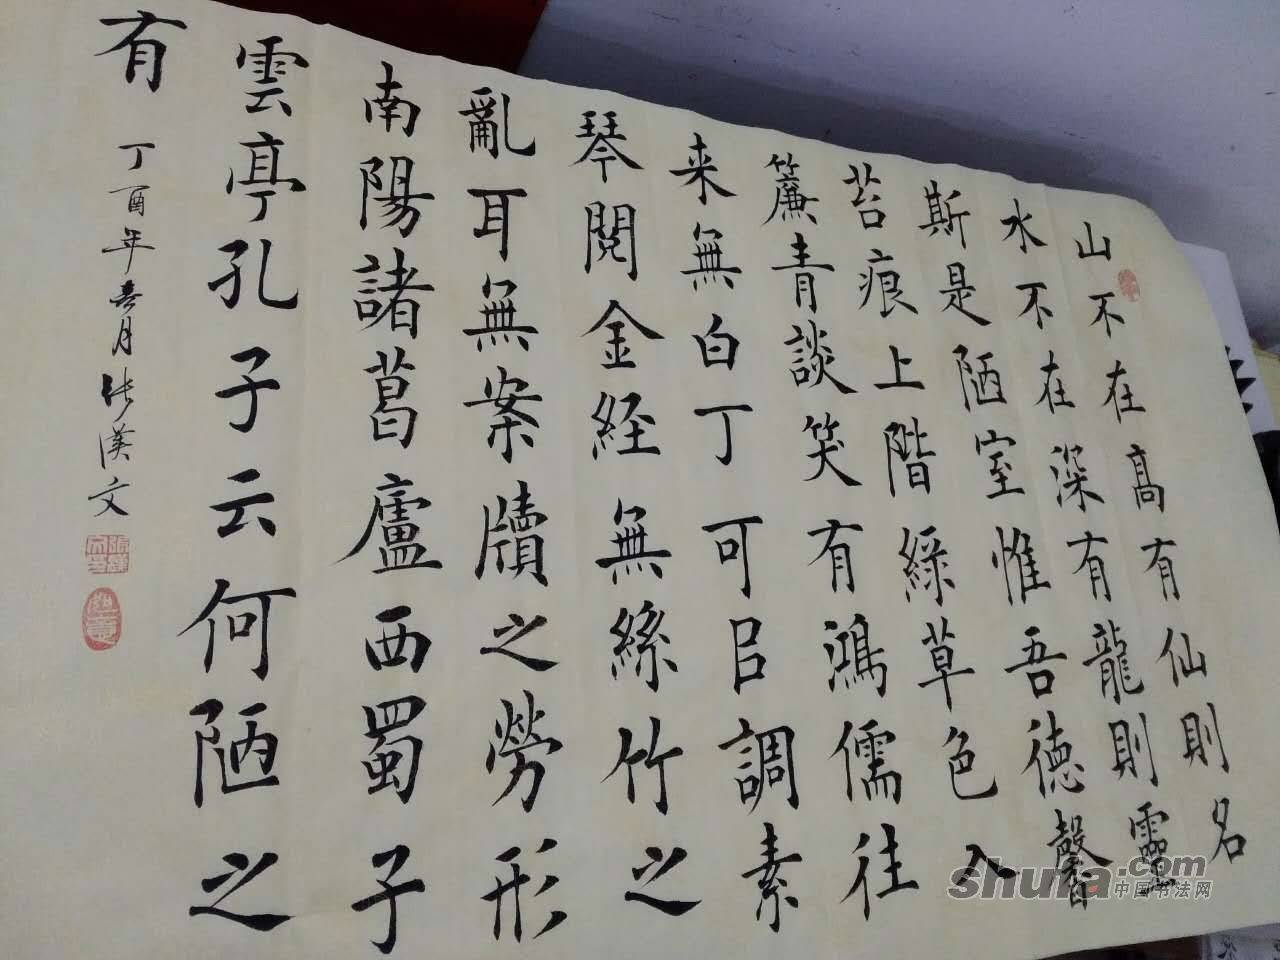 山不在高有仙則名
水不在深有龍則靈
斯是陋室惟吾德馨
苔痕上階綠草色入
簾青談笑有鴻儒往
来無白丁可㠯調素
琴閱金経無絲竹之
亂耳無案牘之勞形
南陽諸葛廬西蜀子
雲亭孔子云何陋之
有
丁酉年春月张漢文
shufa.com
中国书法网